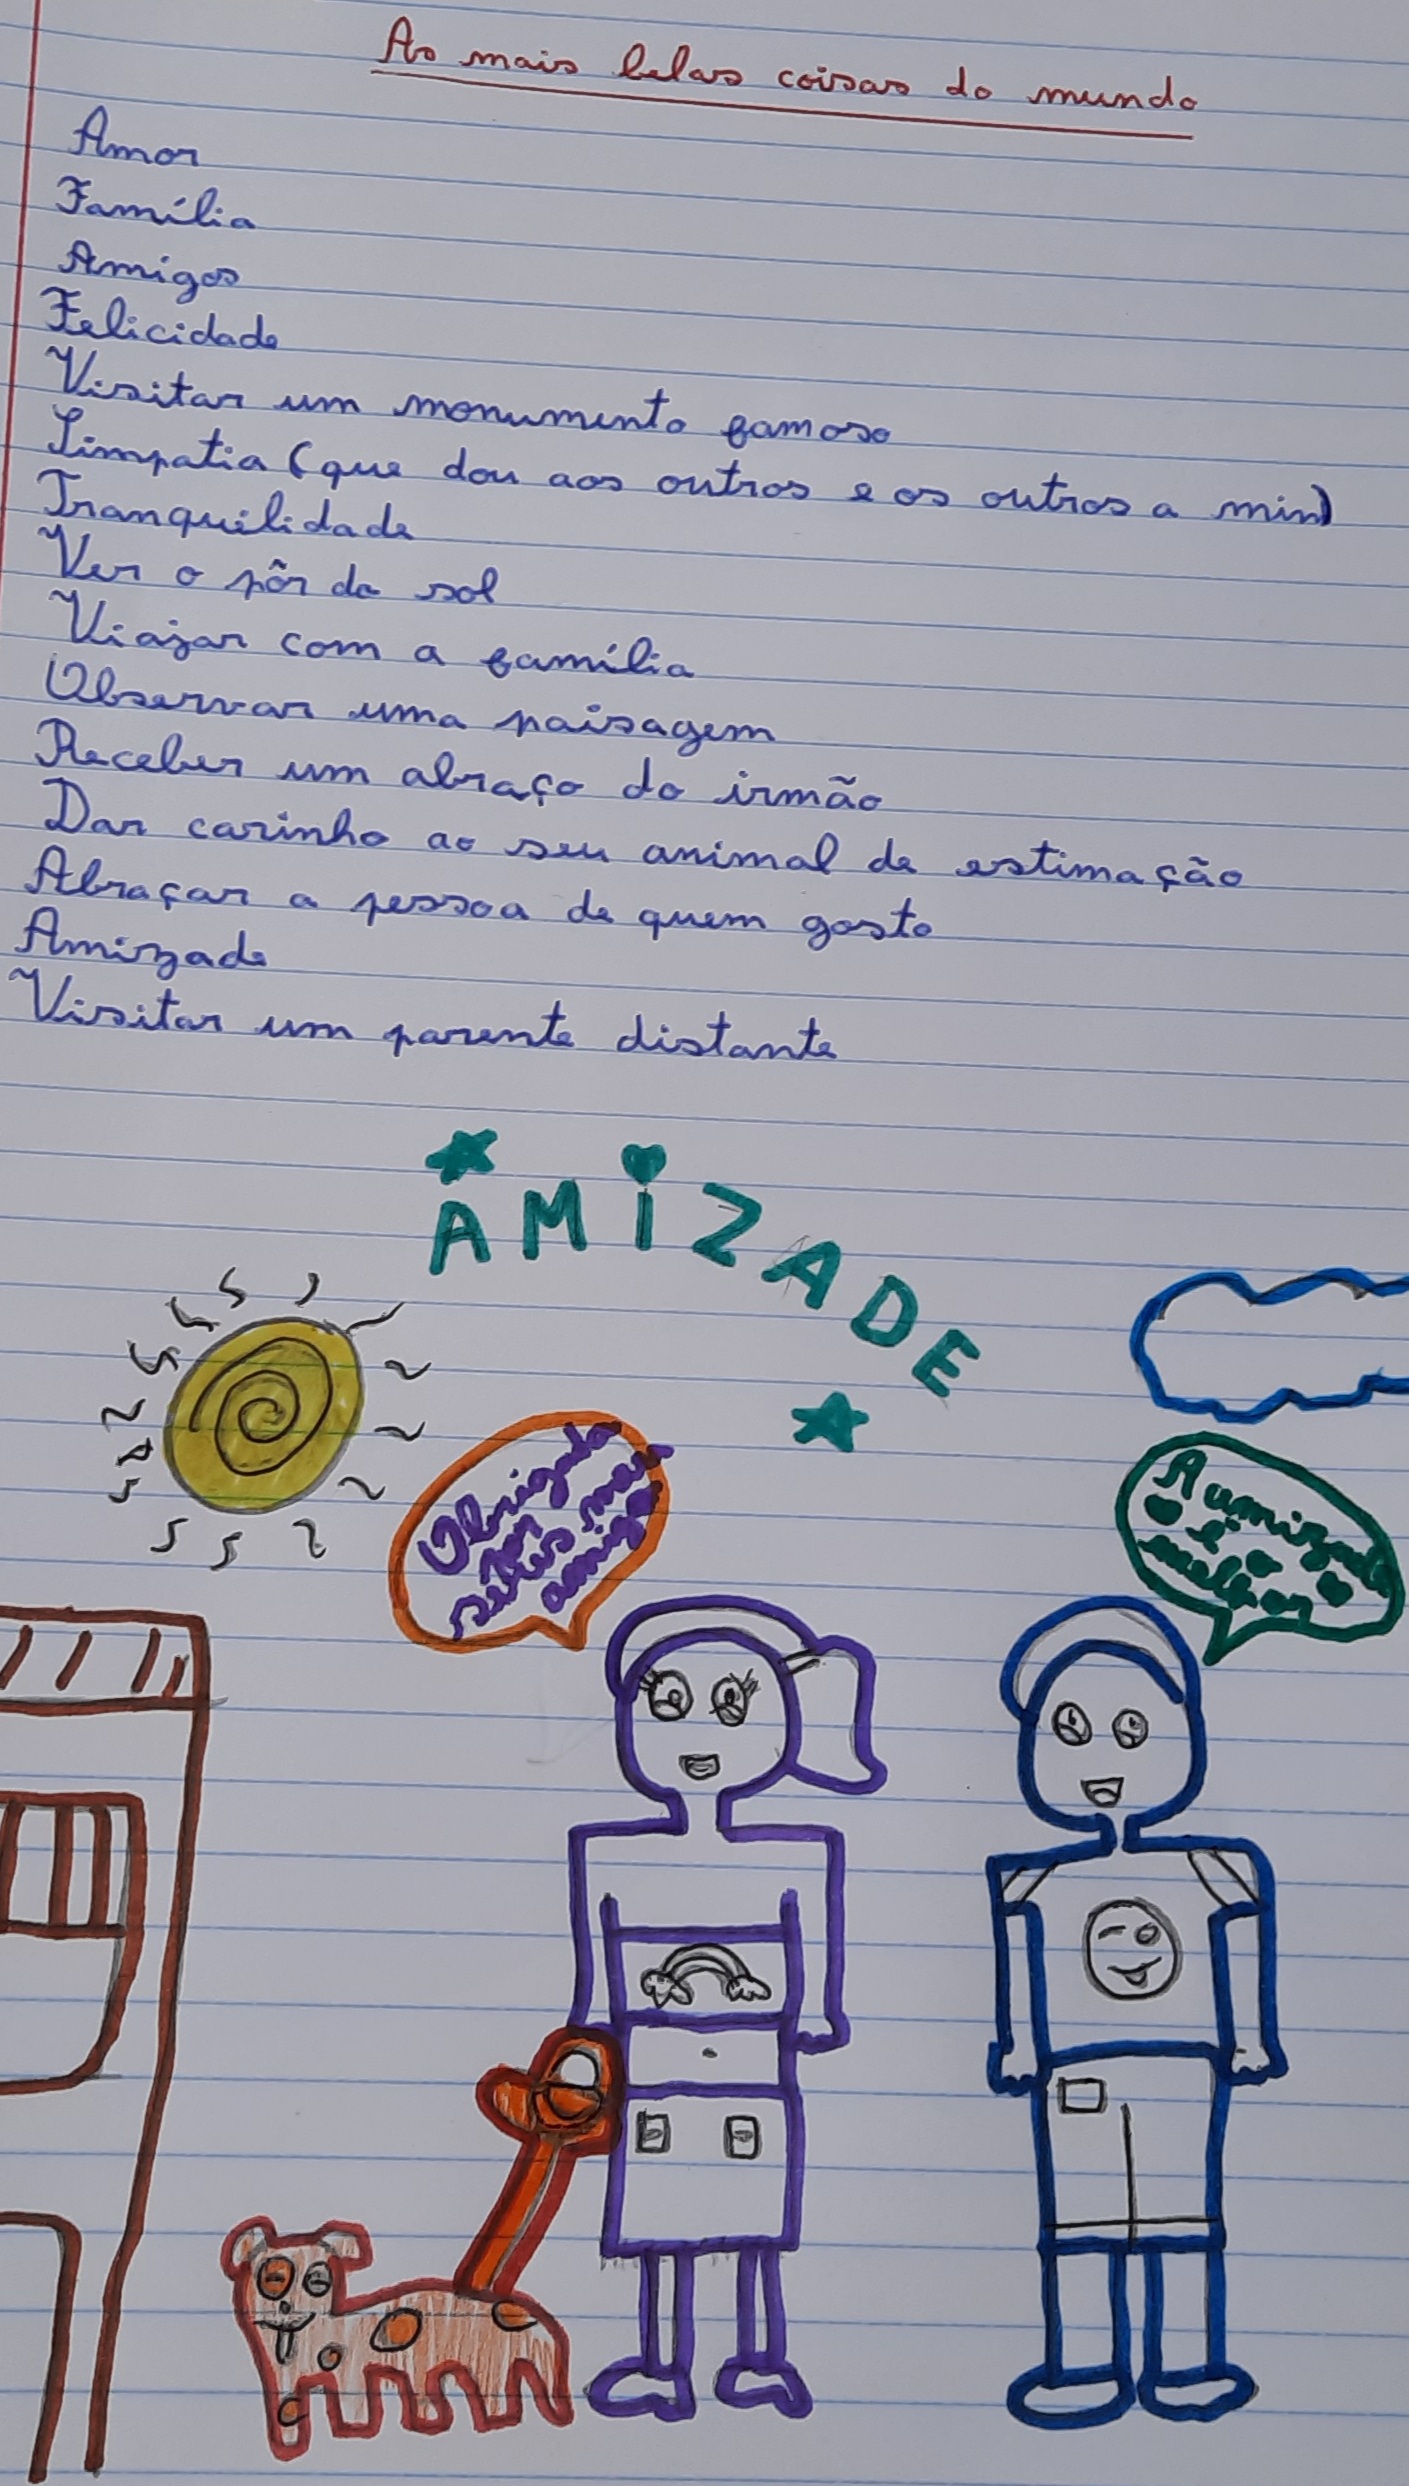 As mais belas coisas do mundo
Amor
Família
Amigos
Felicidade
Visitar um monumento famoso
Simpatia (que dou aos outros e os outros a mim)
Tranquilidade
Ver o pôr do sol
Viajar com a família
Observar uma paisagem
Receber um abraço do irmão
Dar carinho ao seu animal de estimação
Abraçar a pessoa de quem gosto
Amizade
Visitar um parente distante
AMIZADE
Obrigada
por
seres meu
amigo
A amizade
é o
melhor